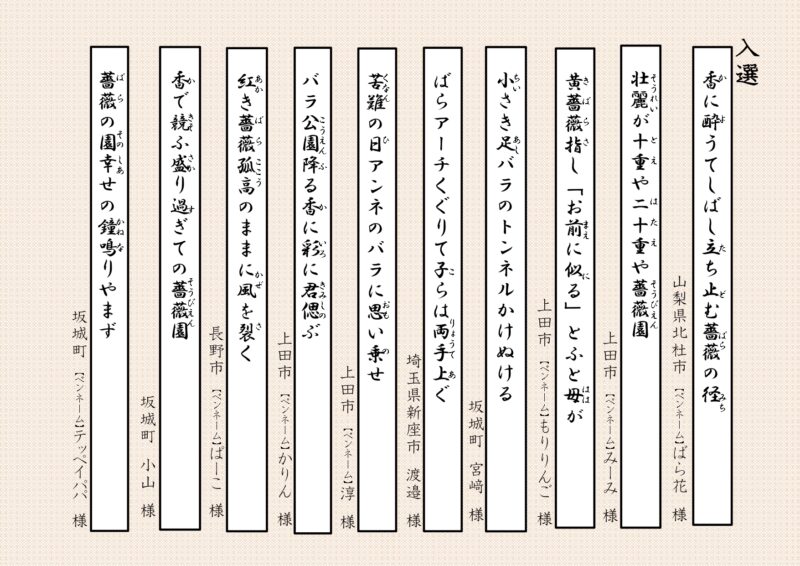 入選
香に酔うてしばし立ち止む薔薇の径
山梨県北杜市 【ペンネーム】ばら花 様
壮麗が十重や二十重や薔薇園
上田市 【ペンネーム】みーみ 様
黄薔薇指し「お前に似る」とふと母が
上田市 【ペンネーム】もりりんご 様
小さき足バラのトンネルかけぬける
坂城町 宮﨑 様
ばらアーチくぐりて子らは両手上ぐ
埼玉県新座市 渡邉 様
苦難の日アンネのバラに思い乗せ
上田市 【ペンネーム】淳 様
バラ公園降る香に彩に君偲ぶ
上田市 【ペンネーム】かりん 様
紅き薔薇孤高のままに風を裂く
長野市 【ペンネーム】ばーこ 様
香で競ふ盛り過ぎての薔薇園
坂城町 小山 様
薔薇の園幸せの鐘鳴りやまず
坂城町 【ペンネーム】テッペイパパ 様